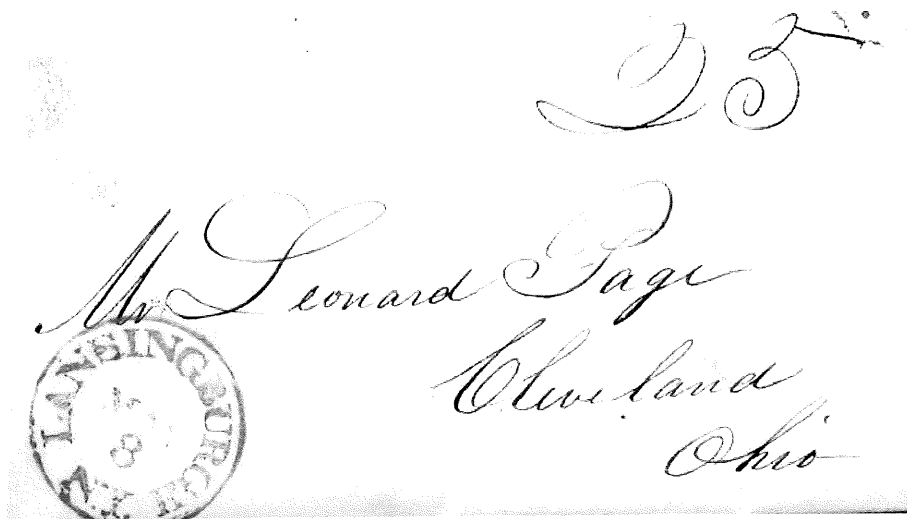 25
Mr Leonard Page
Cleveland
Ohio
LANSINGBURGH N.Y.
8